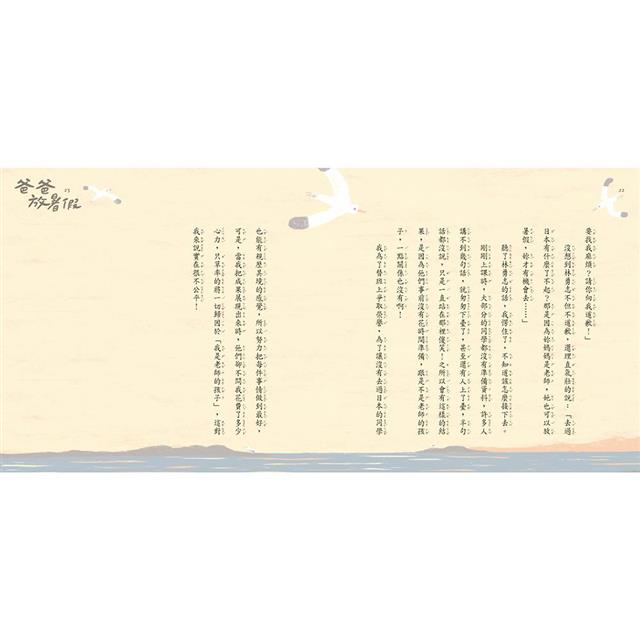 22
要找我麻煩？請你向我道歉！」
沒想到林勇志不但不道歉，還理直氣壯的說：「去過
日本有什麼了不起？那是因為妳媽媽是老師，她也可以放
暑假，妳才有機會去……」
聽了林勇志的話，我愣住了，不知道該怎麼接下去。
剛剛上課時，大部分的同學都沒有準備資料，許多人
講不到幾句話，就匆匆下臺了，甚至還有人上了臺，半句
話都沒說，只是一直站在那裡傻笑！之所以會有這樣的結
果，是因為他們事前沒有花時間準備，跟是不是老師的孩
子，一點關係也沒有啊！
我為了替班上爭取榮譽，為了讓沒有去過日本的同學
也能有親歷其境的感覺，所以努力把每件事情做到最好，
可是，當我把成果展現出來時，他們卻不問我花費了多少
心力，只草率的將一切歸因於「我是老師的孩子」，這對
我來說實在很不公平！
爸爸放暑假
23